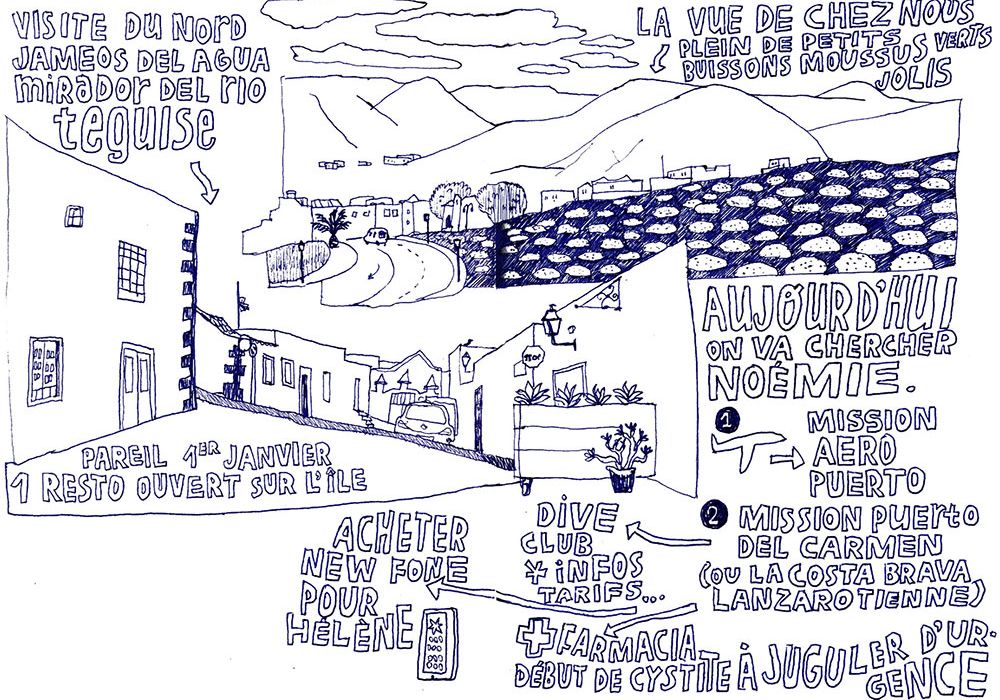 VISITE DU NORD
JAMEOS DEL AGUA
MIRADOR DEL RIO
TEGUISE
LA VUE DE CHEZ NOUS
PLEIN DE PETITS
BUISSONS MOUSSUS VERTS
JOLIS
PAREIL 1ER JANVIER
1 RESTO OUVERT SUR L'ÎLE
AUJOURD'HUI
ON VA CHERCHER
NOÉMIE.
1 MISSION
AERO
PUERTO
2 MISSION PUERTO
DEL CARMEN
(OU LA COSTA BRAVA
LANZAROTIENNE)
DIVE
CLUB
* INFOS
TARIFS...
ACHETER
NEW FONE
POUR
HÉLÈNE
FARMACIA
DÉBUT DE CYSTITE À JUGULER D'UR-
GENCE